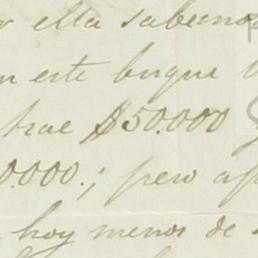 r ella sabemo
n este buque
trae $50.000
0.000.; pero
hoy menos de